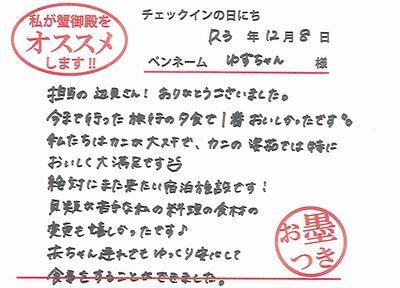 私が蟹御殿を
オススメ
します!!
チェックインの日にち
R3 年 12 月 8 日
ペンネーム ゆずちゃん 様
担当の 辺見さん! ありがとうございました。
今まで行った 旅行の夕食で1番おいしかったです。
私たちはカニが大スキで、カニの姿茹では特に
おいしく大満足です
絶対にまた来たい宿泊施設です!
貝類が苦手な私の料理の食材の
変更も嬉しかったです♪
赤ちゃん連れでもゆっくり安心して
食事をすることができました。
お墨
つき